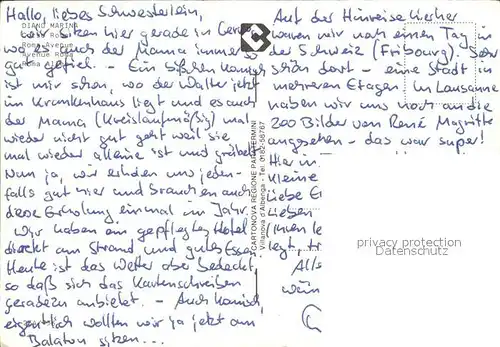 Hallo, liebes Schwesterlein,
wir sitzen hier gerade in
wo es auch der Mama immer so
gut gefiel. - Ein bißchen komisch
ist mir schon, wo der Walter jetzt
im Krankenhaus liegt und es auch
der Mama (Kreislaufmäßig) mal
wieder nicht gut geht weil sie
mal wieder alleine ist und grübelt.
Nun ja, wir erholen uns jeden-
falls gut hier und brauchen auch
diese Erholung einmal im Jahr.
Wir haben ein gepflegtes Hotel
direkt am Strand und gutes Essen.
Heute ist das Wetter aber bedeckt,
so daß sich das Kartenschreiben
geradezu anbietet. - Auch komisch,
eigentlich wollten wir ja jetzt am
Balaton sitzen...
DIANO MARINA
CARTONOVA REGIONE PARATERMINI
Villanova d'Albenga - Tel. 0182-58767
Auf der Hinreise
waren wir noch einen Tag in
der Schweiz (Fribourg). Sehr
schön dort - eine Stadt in
mehreren Etagen. In Lausanne
haben wir uns noch an die
200 Bilder von René Magritte
angesehen - das war super!
Hier in
kleine
liebe
lieben
legt,
Alls
wün
privacy protection
Datenschutz